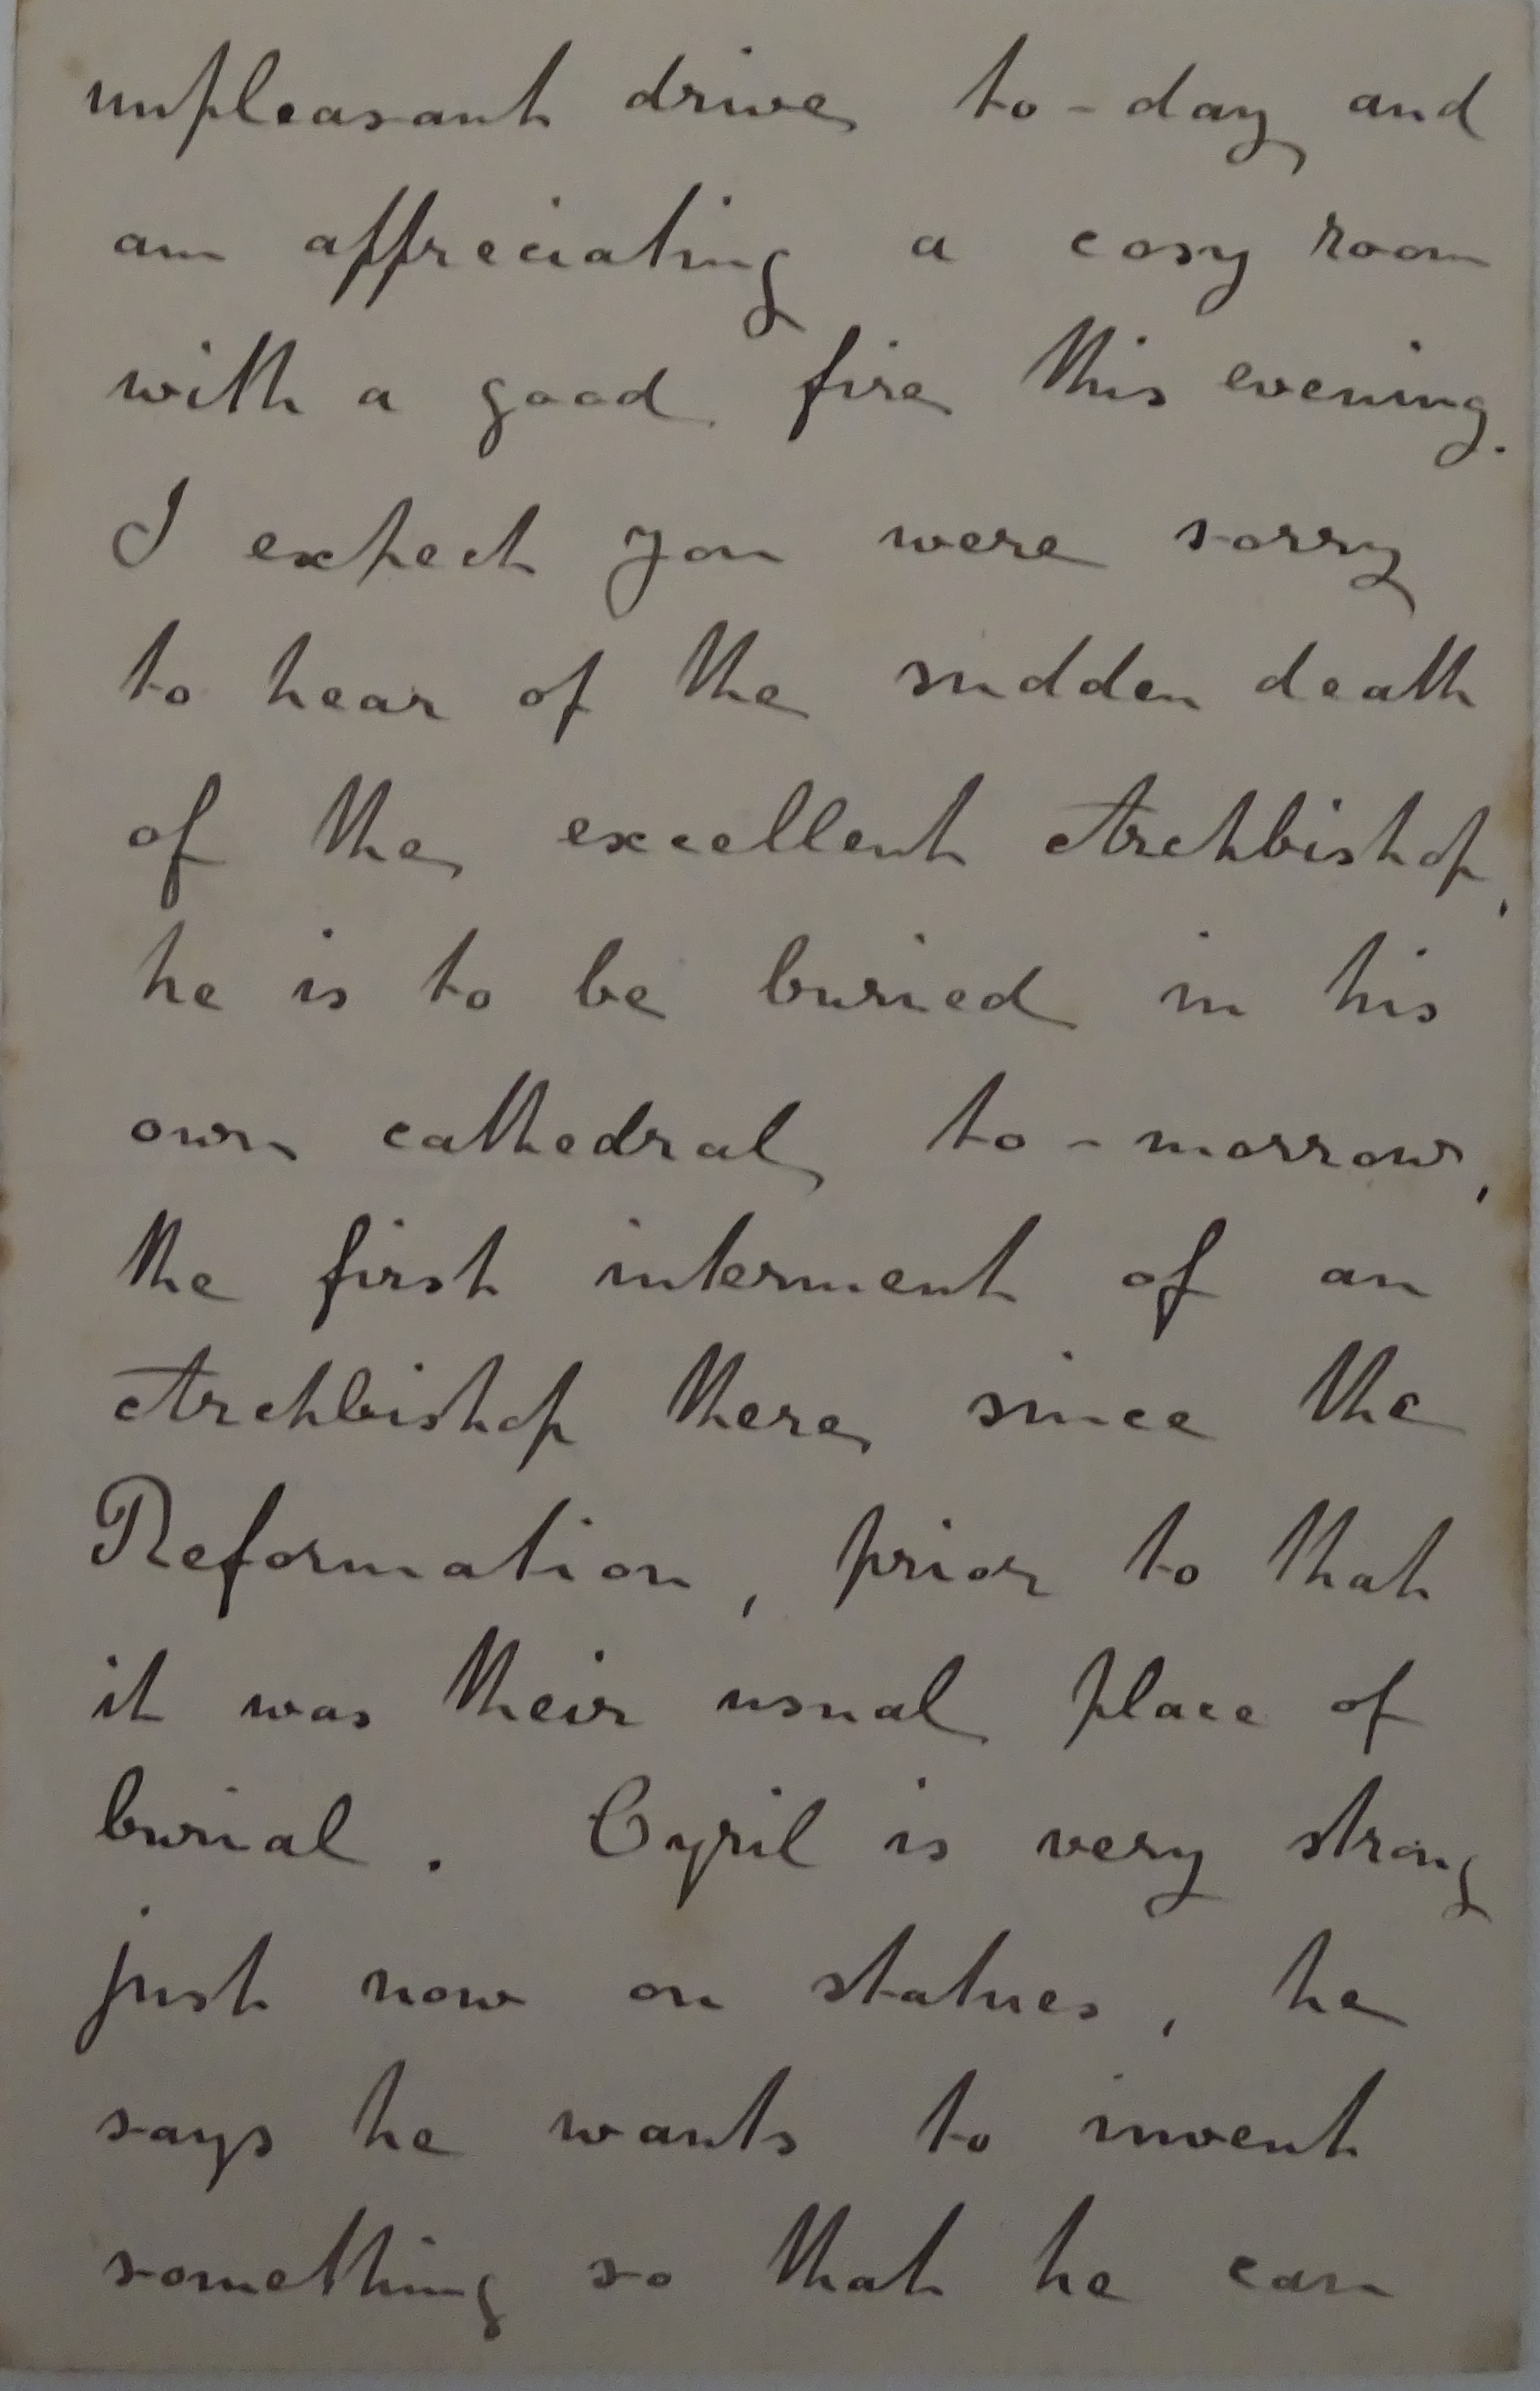 unpleasant drive to-day and
am appreciating a cosy room
with a good fire this evening.
I expect you were sorry
to hear of the sudden death
of the excellent Archbishop,
he is to be buried in his
own cathedral to-morrow,
the first interment of an
Archbishop there since the
Reformation, prior to that
it was their usual place of
burial. Cyril is very strong
just now on statues, he
says he wants to invent
something so that he can